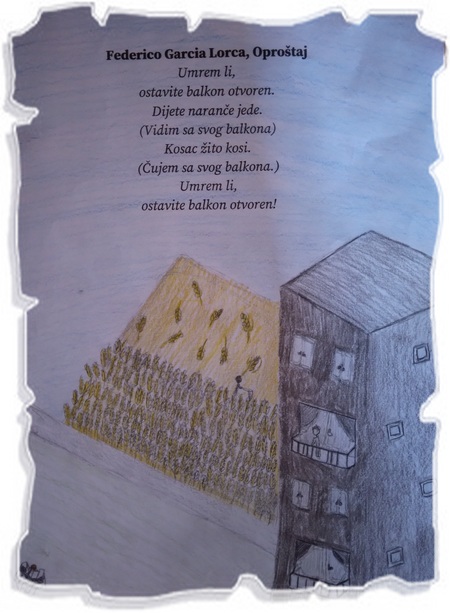 Federico Garcia Lorca, Oproštaj
Umrem li,
ostavite balkon otvoren.
Dijete naranče jede.
(Vidim sa svog balkona)
Kosac žito kosi.
(Čujem sa svog balkona.)
Umrem li,
ostavite balkon otvoren!